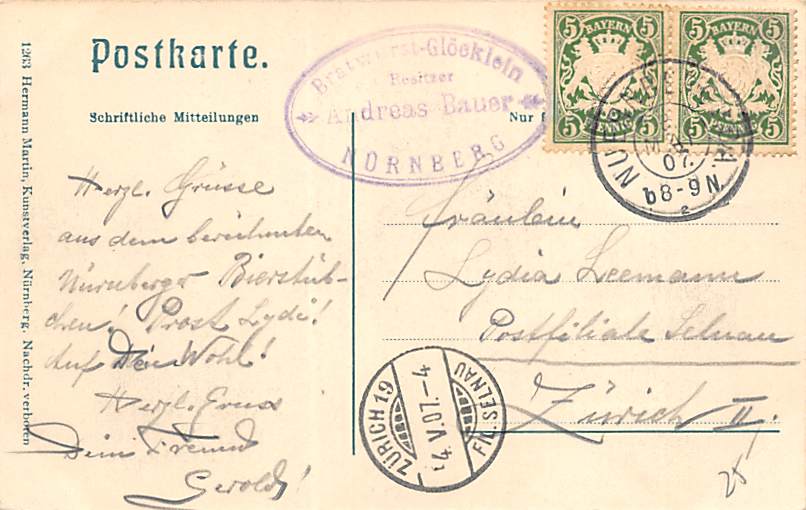 Postkarte.
Bratwurst-Glöcklein
Besitzer
Andreas Bauer
NÜRNBERG
Schriftliche Mitteilungen
Nur f
5 BAYERN 5
5 5
5 BAYERN 5
5
07.
b8-9N.
2
Herzl. Grüsse
aus dem berühmten
Nürnberger Bierstüb-
chen! Prost Lydi!
Auf Dein Wohl!
Herzl. Gruss
Dein Freund
Gerold!
Fräulein
Lydia Leemann
Postfiliale Selnau
Zürich II.
ZÜRICH 19
4.V.07.-4
FIL. SELNAU
25
1263 Hermann Martin, Kunstverlag, Nürnberg. Nachdr. verboten